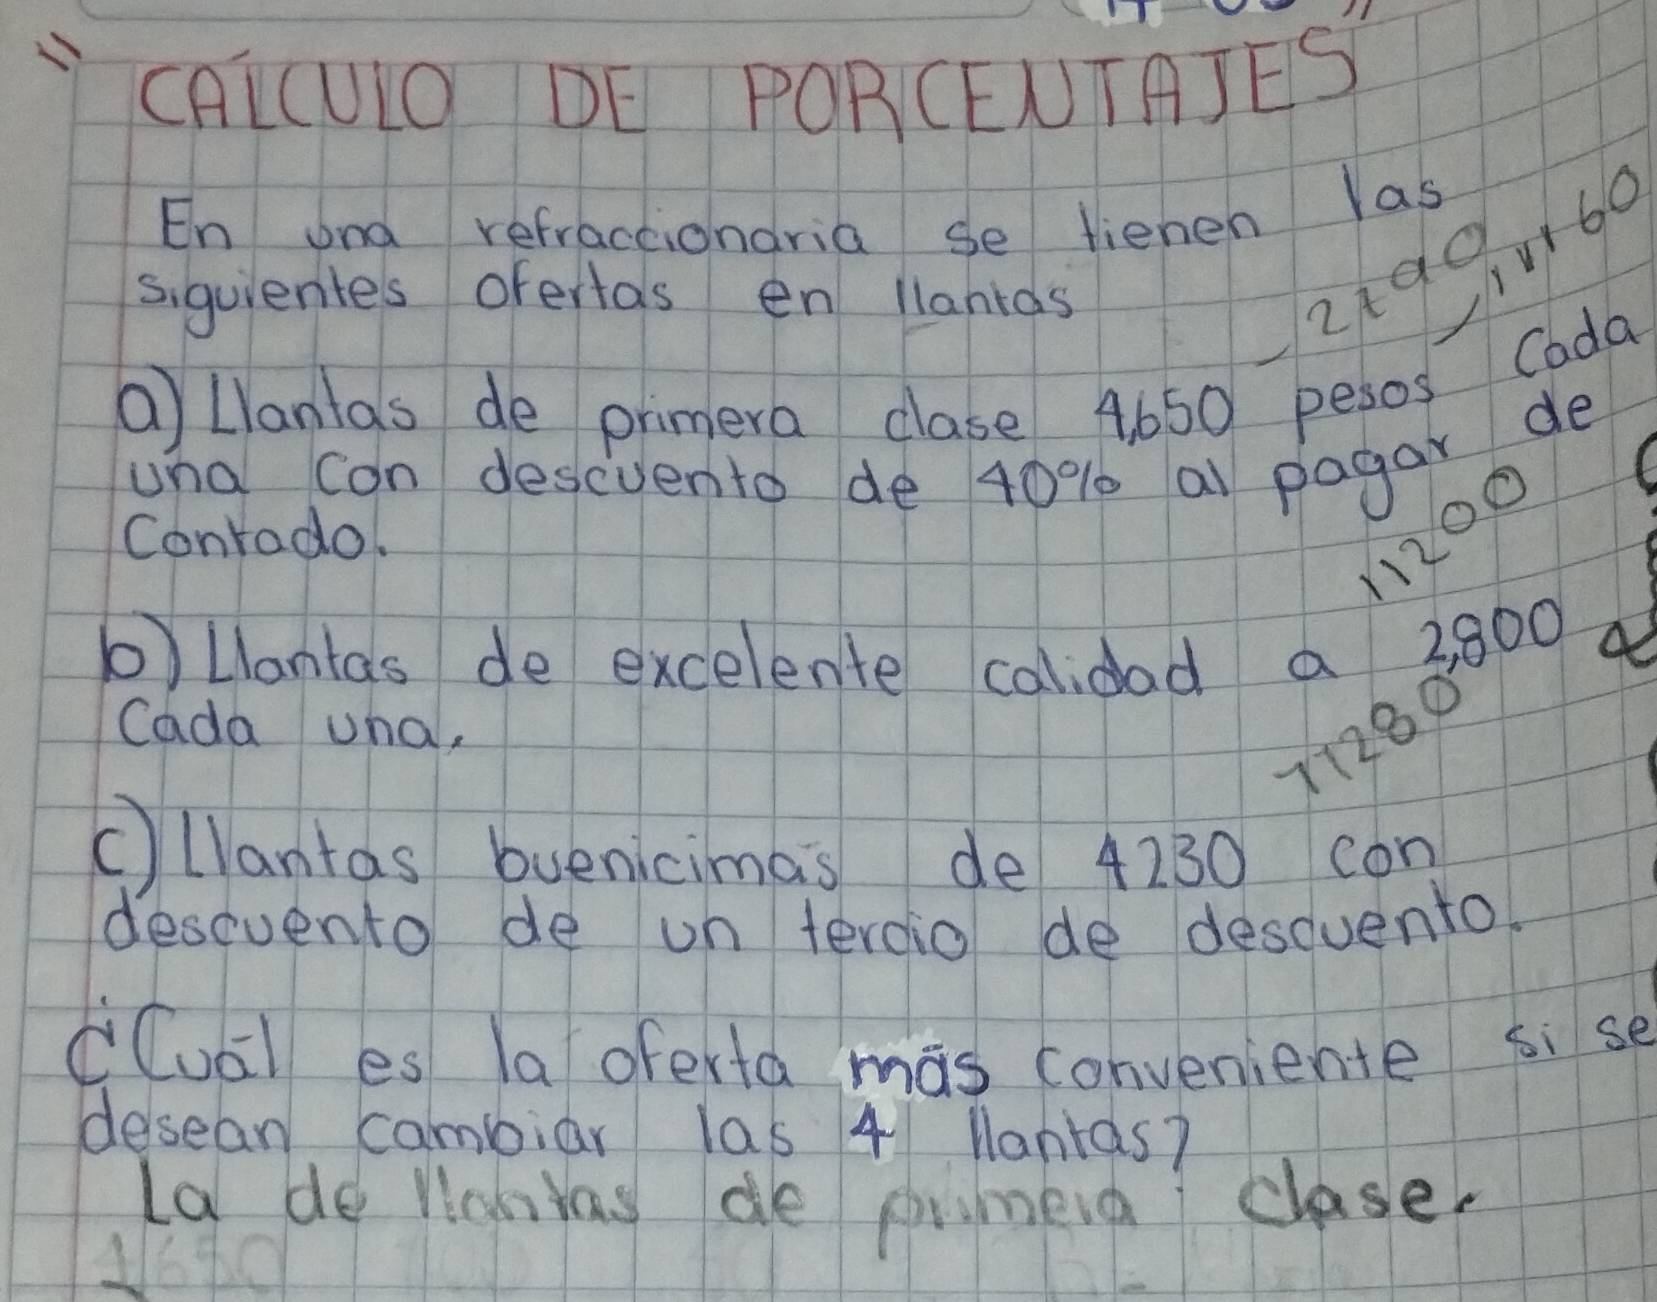 "CÁLCULO DE PORCENTAJES"
En una refraccionaria se tienen las
siguientes ofertas en llantas
2790, 11160
a) Llantas de primera clase 4,650 pesos cada
una con descuento de 40% al pagar de
contado.
11200
b) Llantas de excelente calidad a 2,800
cada una.
11280
c) Llantas buenicimas de 4230 con
descuento de un tercio de descuento.
¿Cuál es la oferta más conveniente si se
desean cambiar las 4 llantas?
La de llantas de primera clase.
4650